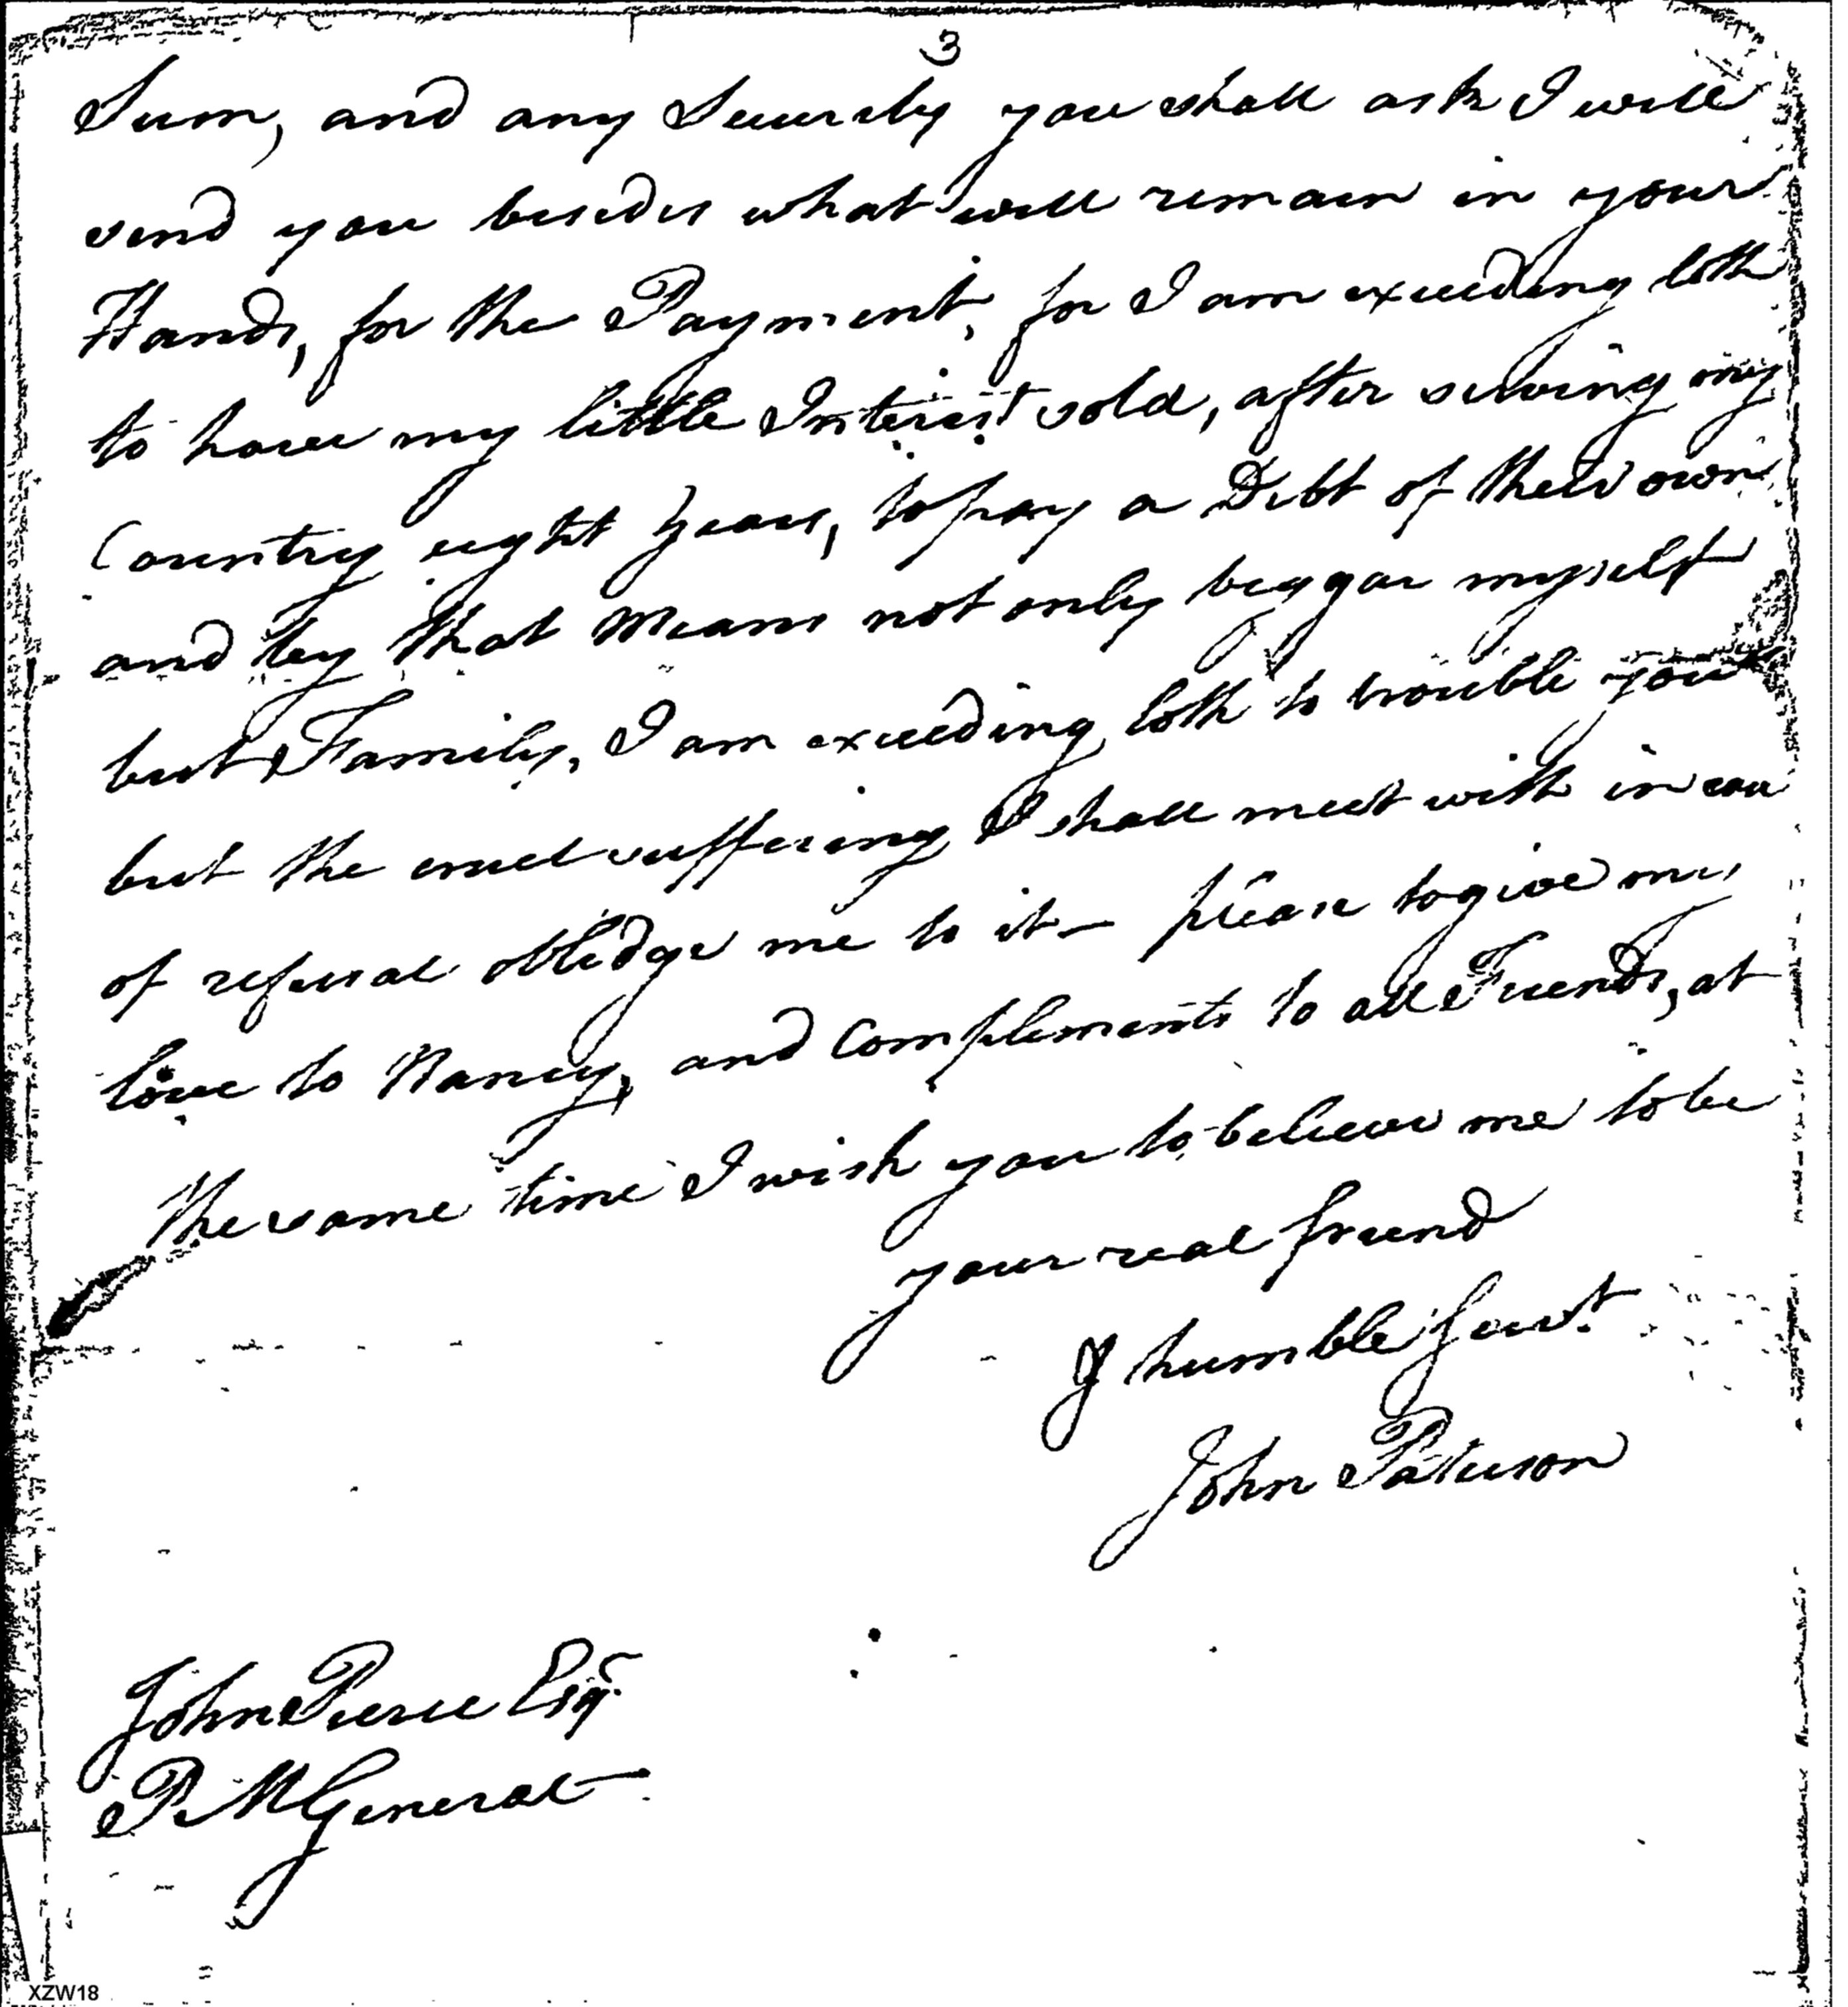 3
Sum, and any Security you shall ask I will
send you besides what will remain in your
Hands, for the Payment, for I am exceeding loth
to have my little Interest sold, after serving my
Country eight years, to pay a Debt of their own
and by that means not only beggar myself
but Family, I am exceeding loth to trouble you
but the cruel suffering I shall meet with in case
of refusal obledge me to it — please to give my
love to Nancy, and Complements to all Friends, at
the same time I wish you to believe me to be
your real friend
& humble Servt.
John Paterson
John Pierce Esqr.
P M General
XZW18